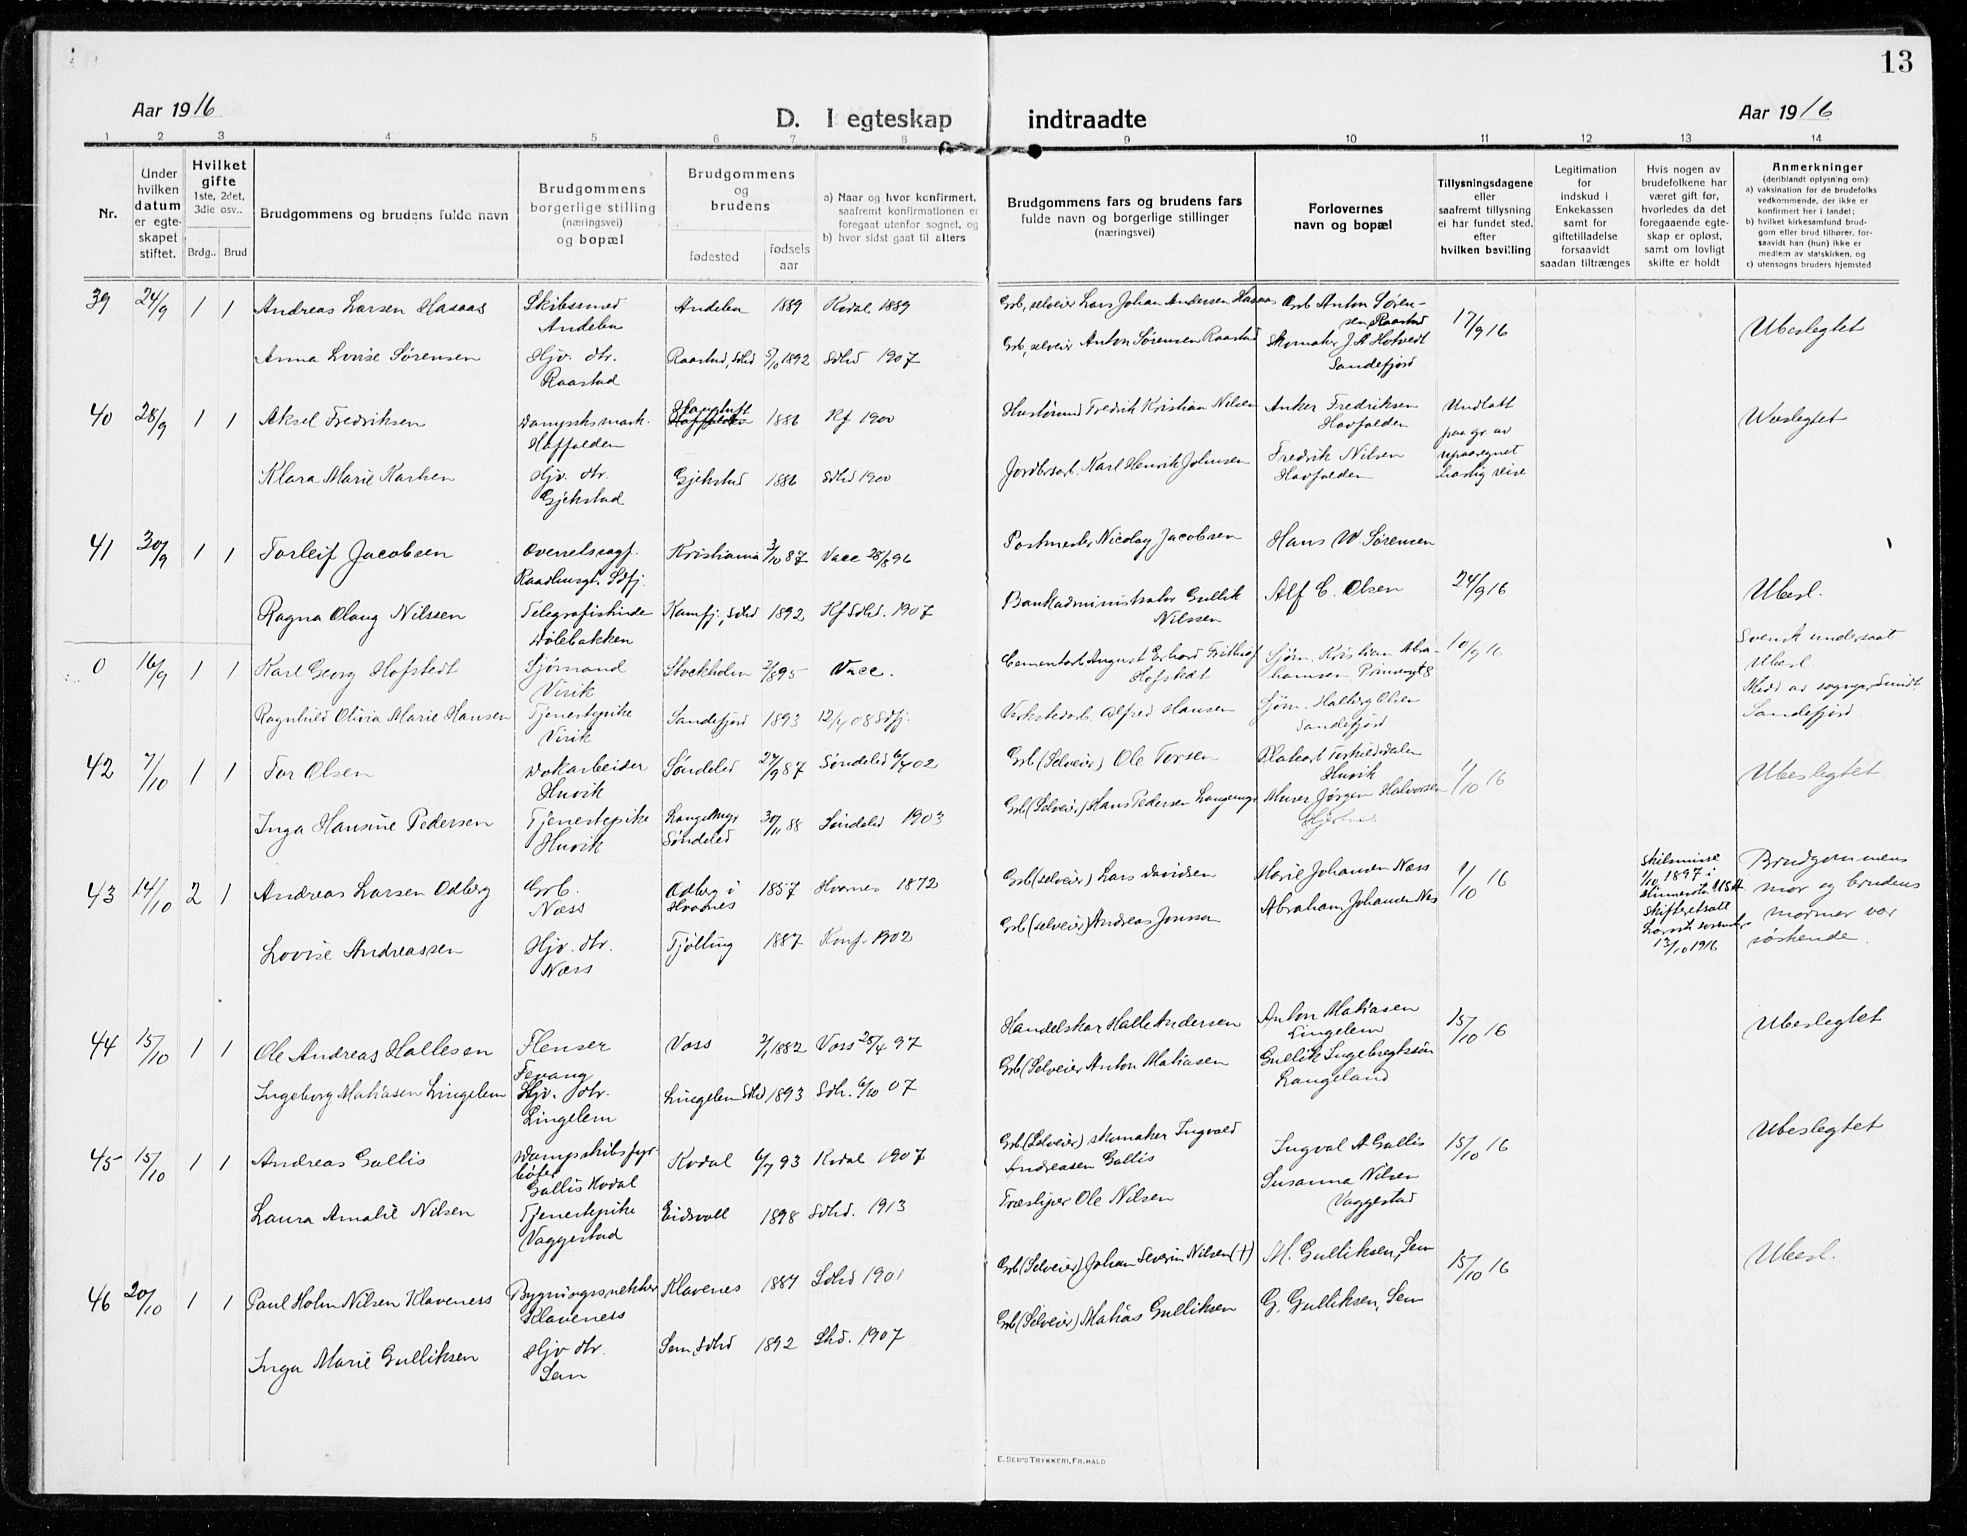 13
Aar 1916
D. I egteskap indtraadte
Aar 1916
1 2 3 4 5 6 7 8 9 10 11 12 13 14
Nr.
Under hvilken datum er egteskapet stiftet.
Hvilket gifte
1ste, 2det, 3die osv..
Brdg.. Brud
Brudgommens og brudens fulde navn
Brudgommens borgerlige stilling (næringsvei) og bopæl
Brudgommens og brudens
fødested
fødsels aar
a) Naar og hvor konfirmert, saafremt konfirmationen er foregaat utenfor sognet, og
b) hvor sidst gaat til alters
Brudgommens fars og brudens fars fulde navn og borgerlige stillinger (næringsvei)
Forlovernes navn og bopæl
Tillysningsdagene eller saafremt tillysning ei har fundet sted, efter hvilken bevilling
Legitimation for indskud i Enkekassen samt for giftetilladelse forsaavidt saadan tiltrænges
Hvis nogen av brudefolkene har været gift før, hvorledes da det foregaaende egteskap er opløst, samt om lovligt skifte er holdt
Anmerkninger
(deriblandt oplysning om):
a) vaksination for de brudefolks vedkommende, der ikke er konfirmert her i landet;
b) hvilket kirkesamfund brudgom eller brud tilhører, forsaavidt han (hun) ikke er medlem av statskirken, og
c) utensogns bruders hjemsted
39 24/9 1 1 Andreas Larsen Hasaas Skibssmed Andebu Andebu 1889 Kodal 1889 Grb, selveier Lars Johan Andersen Hasaas Grb Anton Sørensen, Raastad 17/9 16 Ubeslegtet
Anna Lovise Sørensen Hjv. dtr. Raastad Raastad, Sdhd 5/10 1892 Sdhd 1907 Grb, selveier Anton Sørensen Raastad Skomaker J A Hotvedt Sandefjord
40 28/9 1 1 Aksel Fredriksen Haffalden 1886 Kf 1900 Fredrik Kristian Nilsen Anker Fredriksen Havfalden Undlatt paa gr. av upaaregnet hastig reise Ubeslegtet
Klara Marie Karlsen Hjv. dtr. Gjekstad Gjekstad 1886 Sdhd 1900 Jordbrsarb. Karl Henrik Johnsen Fredrik Nilsen Havfalden
41 30/9 1 1 Torleif Jacobsen Overretssagf. Raadhusgt. Sdfj. Kristiania 3/10 87 Vacc 28/8 96 Postmester Nicolay Jacobsen Hans W Sørensen
Ragna Olaug Nilssen Telegrafistinde Dølebakken Kamfj., Sdhd 1892 Kf Sdhd. 1907 Bankadministrator Gullik Nilssen Alf C. Olsen 24/9 16 Ubesl.
0 16/9 1 1 Karl Georg Hofstedt Sjømand Virik Stockholm 2/8 95 Vacc. Cementarb August Erhard Frithiof Hofstedt Sjøm. Kristian Abrahamsen 10/9 16 Svensk undersaat Ubesl.
Ragnhild Olivia Marie Hansen Tjenestepike Virik Sandefjord 1893 12/4 08 Sdfj. Verkstedarb. Alfred Hansen Sjøm. Halberg Olsen Sandefjord Medd av sognepr. Smidt Sandefjord
42 7/10 1 1 Tor Olsen Dokarbeider Huvik Søndeled 27/9 87 Søndeled 6/4 02 Grb (Selveier) Ole Torsen Huvik Ubeslegtet
Inga Hansine Pedersen Tjenestepike Huvik Langemyr Søndeled 30/11 88 Søndeled 1903 Grb (Selveier) Hans Pedersen Langemyr Murer Jørgen Halvorsen 1/10 16
43 14/10 2 1 Andreas Larsen Odberg Grb. Næss Odberg i Hvarnes 1857 Hvarnes 1872 Grb (selveier) Lars Davidsen Marie Johansen Næss 1/10 16 Skilsmisse 1/10 1897 i Minnesota USA Skifteretsatt 12/10 1916 Brudgommens mor og brudens mormor var søskende.
Lovise Andreassen Hjv. dtr. Næss Tjølling 1887 Konf. 1902 Grb (selveier) Andreas Jonsson Abraham Johansen Næs
44 15/10 1 1 Ole Andreas Hallesen Flenser Fevang Voss 2/1 1882 Voss 25/4 97 Handelskar Halle Andersen Anton Matiasen Lingelem 15/10 16 Ubeslegtet
Ingeborg Matiasen Lingelem Hjv. dtr. Lingelem Lingelem Sdhd 1893 Sdh. 6/10 07 Grb (Selveier Anton Matiasen Gullik Ingebregtsen Langeland
45 15/10 1 1 Andreas Gallis Dampskibsfyrbøter Gallis Kodal Kodal 6/7 93 Kodal 1907 Grb (Selveier) skomaker Ingvald Andreasen Gallis Ingval A Gallis 15/10 16 Ubeslegtet
Laura Amalie Nilsen Tjenestepike Vaggestad Eidsvoll 1898 Sdhd. 1913 Træsliper Ole Nilsen Susanna Nilsen Vaggestad
46 20/10 1 1 Paul Holm Nilsen Klaveness Bygningssnekker Klaveness Klavenes 1887 Sdhd 1901 Grb (Selveier) Johan Severin Nilsen (†) M. Gulliksen, Sem 15/10 16 Ubesl.
Inga Marie Gulliksen Hjv dtr. Sem Sem, Sdhd 1892 Shd. 1907 Grb (Selveier) Matias Gulliksen G. Gulliksen, Sem
E. SEM'S TRYKKERI, FR.HALD